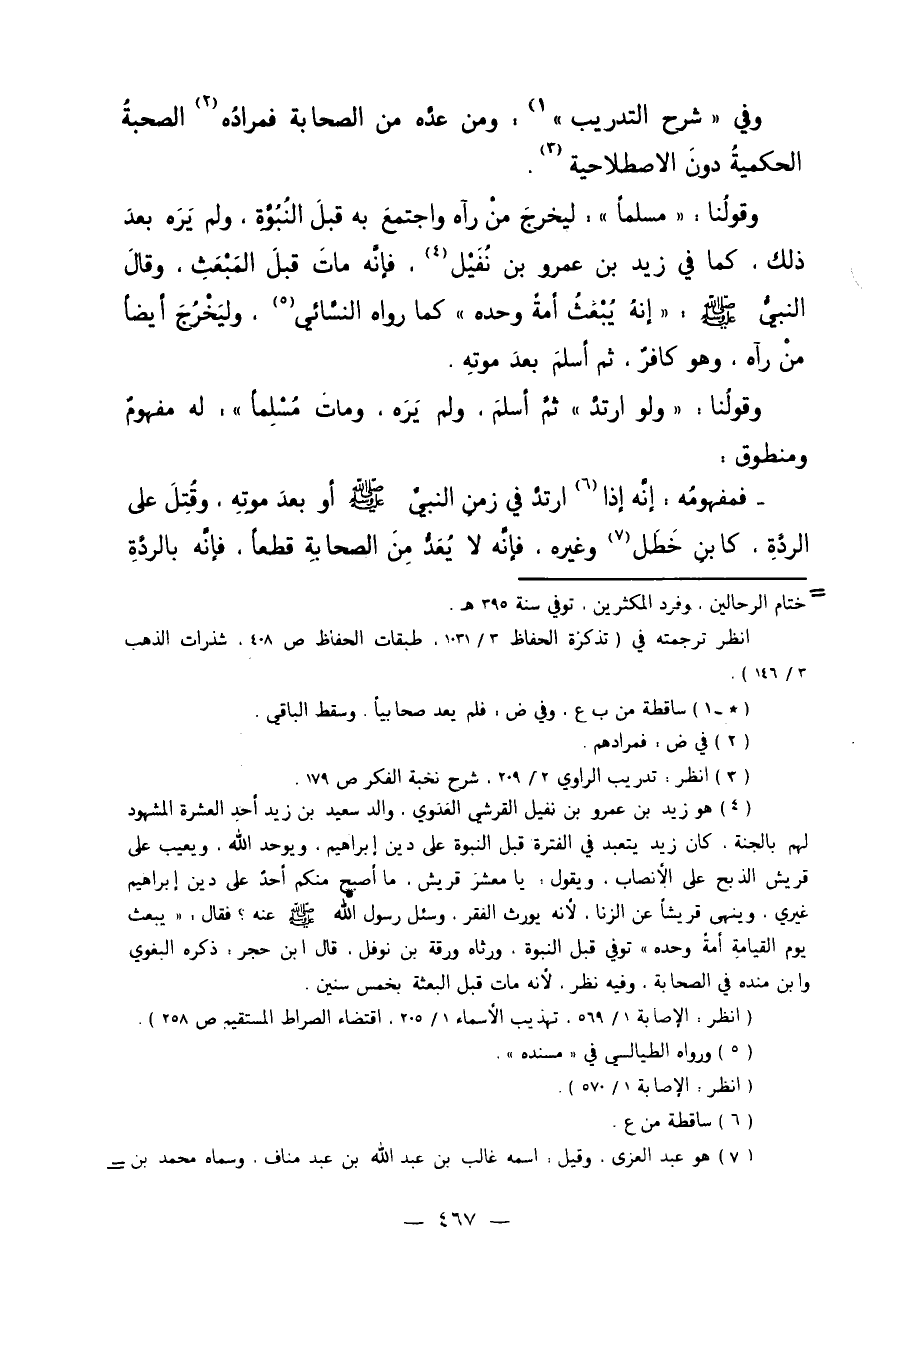 وفي « شرح التدريب »١) : ومن عدَّه من الصحابة فمرادُه(٢) الصحبةُ
الحكميةُ دونَ الاصطلاحية(٣) .
وقولُنا : « مسلماً » : ليخرجَ منْ رآه واجتمعَ به قبلَ النُّبُوَّةِ ، ولم يَرَه بعدَ
ذلك ، كما في زيد بن عمرو بن نُفَيْل(٤) ، فإنَّه ماتَ قبلَ المَبْعَثِ ، وقالَ
النبيُّ ﷺ : « إنهُ يُبْعَثُ أمةً وحده » كما رواه النسَّائي(٥) ، وليَخْرُجَ أيضاً
منْ رآه ، وهو كافرٌ ، ثم أسلمَ بعدَ موتهِ .
وقولُنا : « ولو ارتدَّ » ثمَّ أسلمَ ، ولم يَرَه ، وماتَ مُسْلِماً » : له مفهومٌ
ومنطوق :
ـ فمفهومُه : إنَّه إذا(٦) ارتدَّ في زمنِ النبيِّ ﷺ أو بعدَ موتِهِ ، وقُتِلَ على
الردَّةِ ، كابنِ خَطَل(٧) وغيره ، فإنَّه لا يُعَدُّ مِنَ الصحابةِ قطعاً ، فإنَّه بالردَّةِ
= ختام الرحالين ، وفرد المكثرين ، توفي سنة ٣٩٥ هـ .
انظر ترجمته في ( تذكرة الحفاظ ٣ / ١٠٣١ ، طبقات الحفاظ ص ٤٠٨ ، شذرات الذهب
٣ / ١٤٦ ) .
( ★ ـ ١ ) ساقطة من ب ع ، وفي ض : فلم يعد صحابياً . وسقط الباقي .
( ٢ ) في ض : فمرادهم .
( ٣ ) انظر : تدريب الراوي ٢ / ٢٠٩ ، شرح نخبة الفكر ص ١٧٩ .
( ٤ ) هو زيد بن عمرو بن نفيل القرشي العدوي ، والد سعيد بن زيد أحد العشرة المشهود
لهم بالجنة . كان زيد يتعبد في الفترة قبل النبوة على دين إبراهيم ، ويوحد الله ، ويعيب على
قريش الذبح على الأنصاب ، ويقول : يا معشر قريش ، ما أصبح منكم أحدٌ على دين إبراهيم
غيري ، وينهى قريشاً عن الزنا ، لأنه يورث الفقر ، وسئل رسول الله ﷺ عنه ؟ فقال : « يبعث
يوم القيامةِ أمةً وحده » توفي قبل النبوة ، ورثاه ورقة بن نوفل ، قال ابن حجر : ذكره البغوي
وابن منده في الصحابة ، وفيه نظر ، لأنه مات قبل البعثة بخمس سنين .
( انظر : الإصابة ١ / ٥٦٩ ، تهذيب الأسماء ١ / ٢٠٥ ، اقتضاء الصراط المستقيم ص ٢٥٨ ) .
( ٥ ) ورواه الطيالسي في « مسنده » .
( انظر : الإصابة ١ / ٥٧٠ ) .
( ٦ ) ساقطة من ع .
( ٧ ) هو عبد العزى ، وقيل : اسمه غالب بن عبد الله بن عبد مناف ، وسماه محمد بن =
— ٤٦٧ —